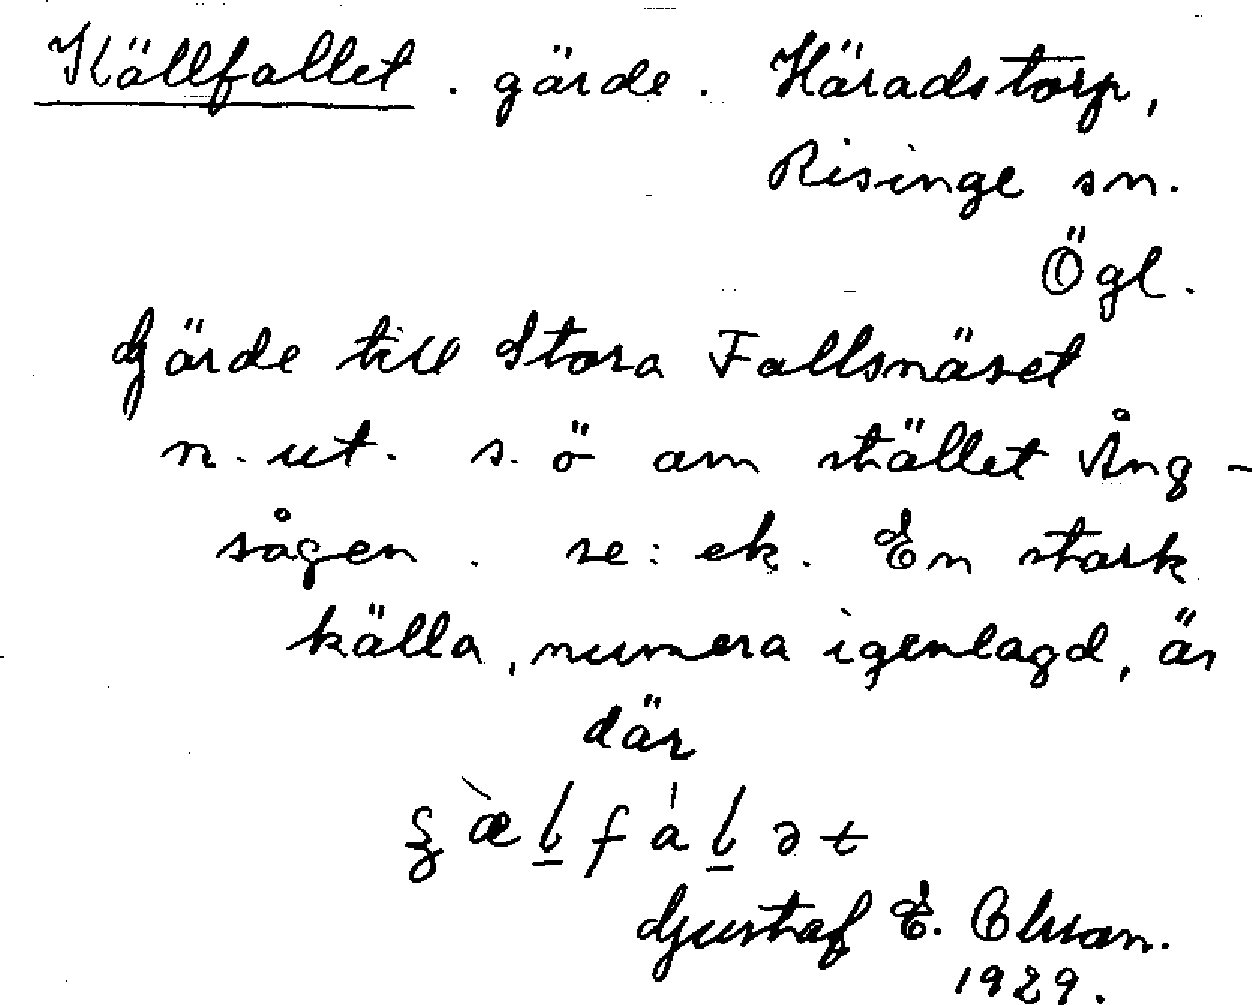 Källfallet. gärde. Häradstorp,
Risinge sn.
Ögl.
Gärde till Stora Fallsnäset
n. ut. s. ö om stället Ång-
sågen. se: ek. En stark
källa, numera igenlagd, är
där
Gustaf E. Olsson.
1929.